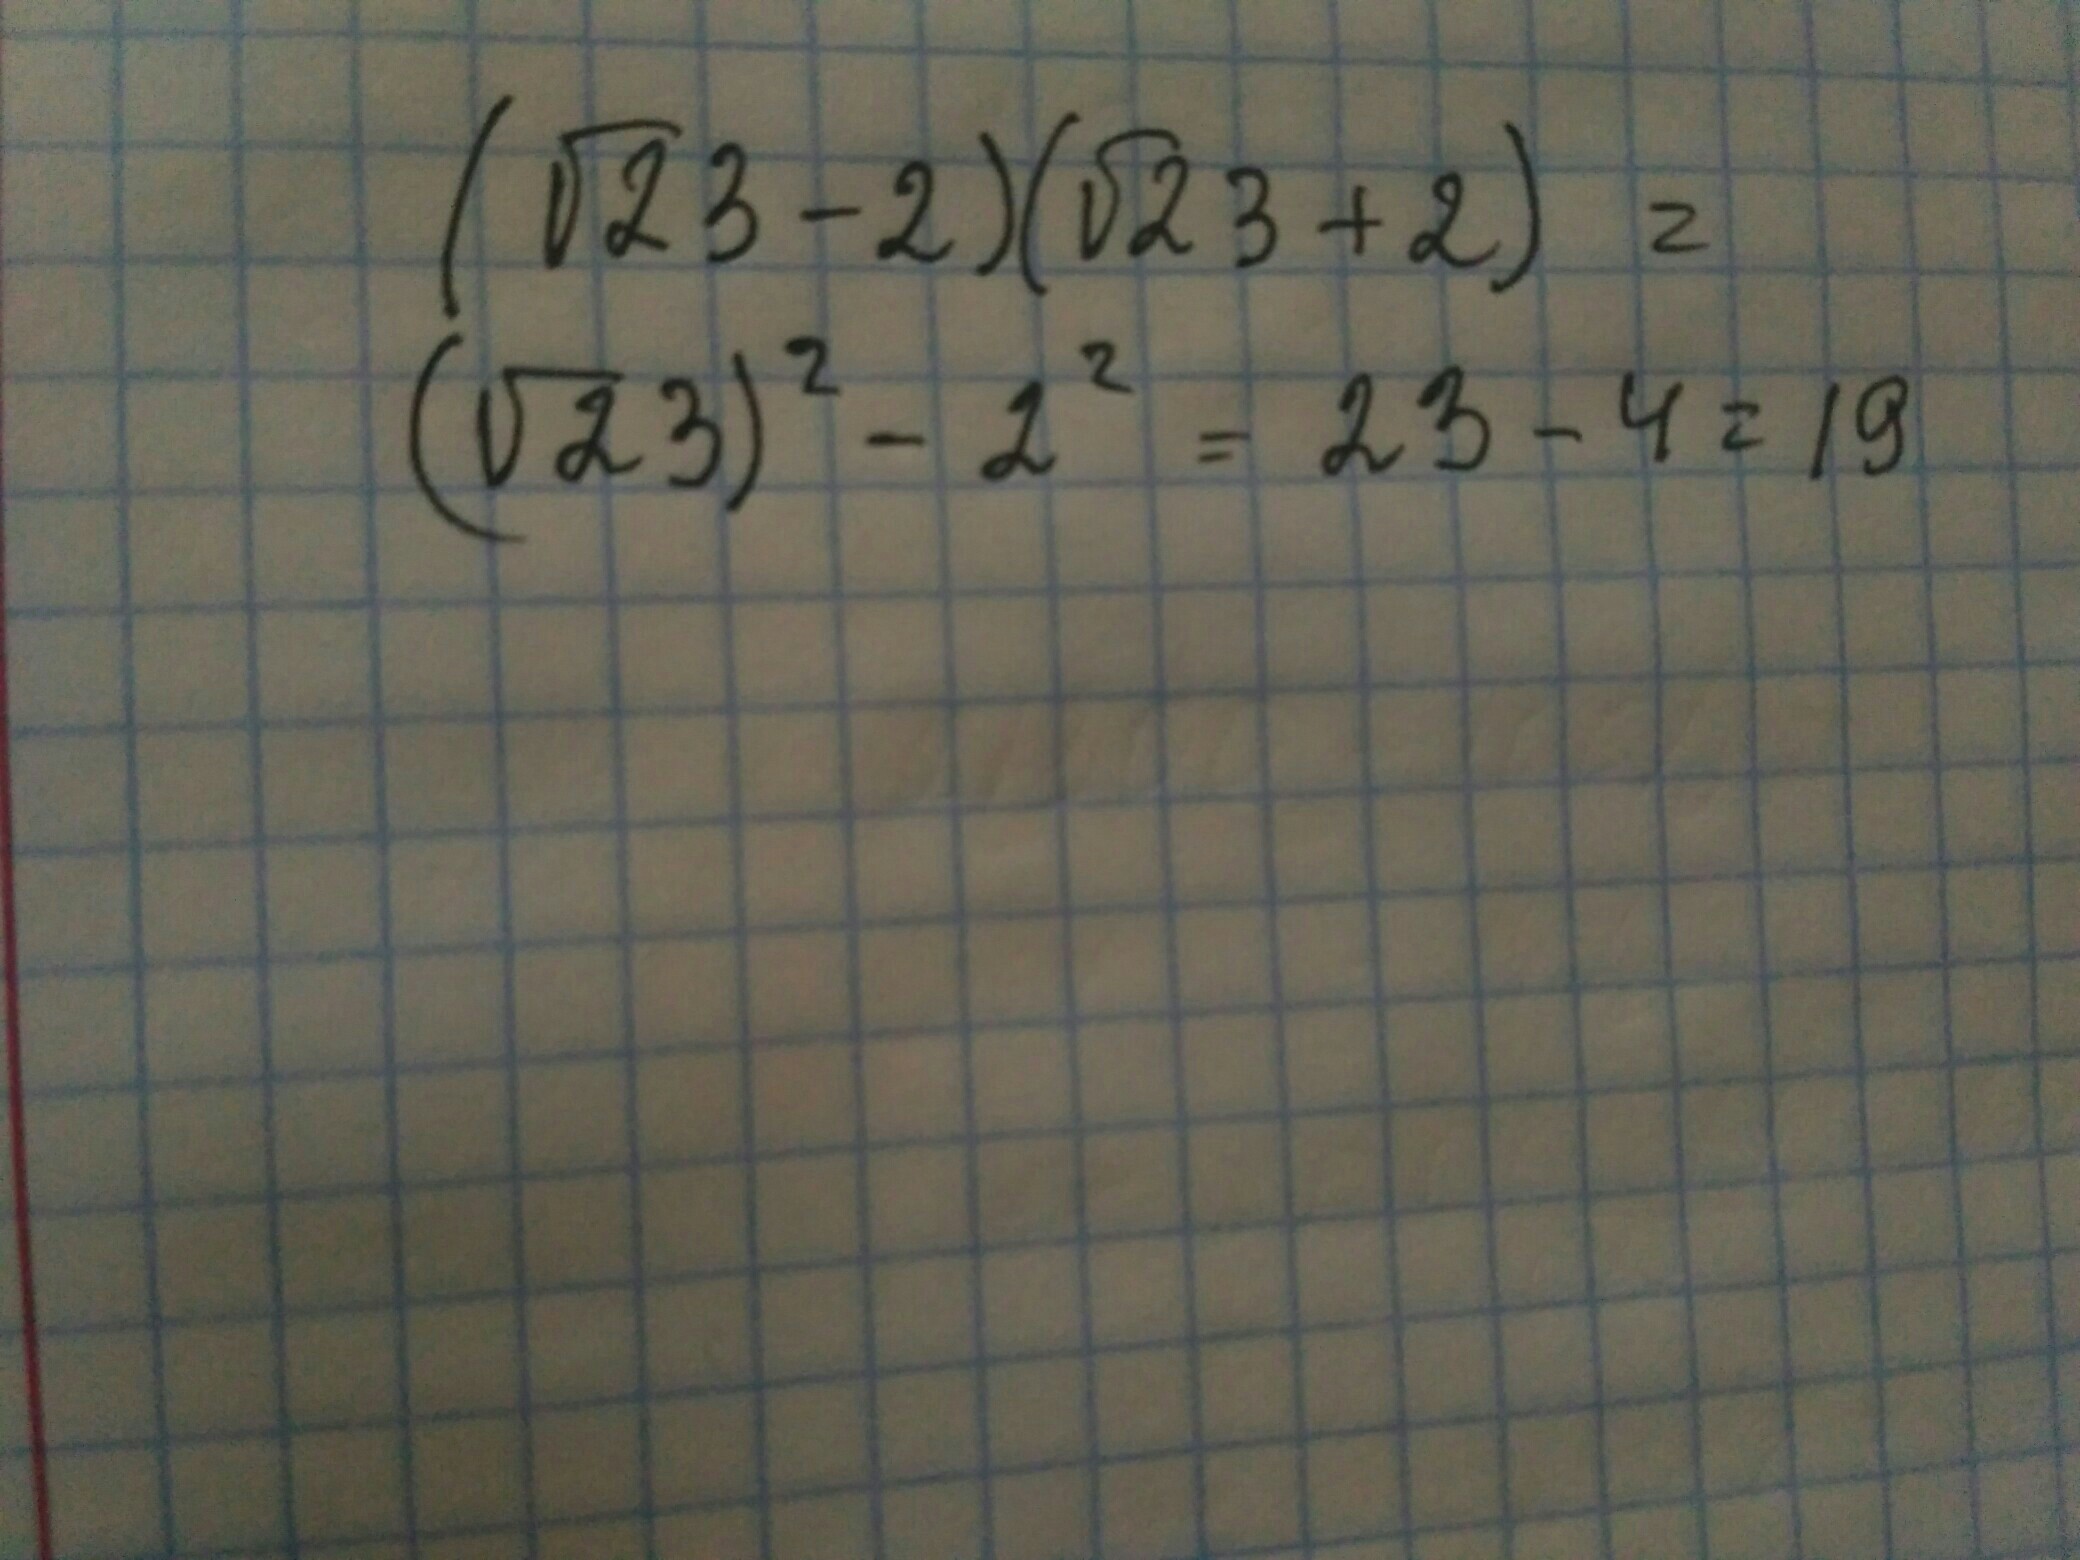 (√23 - 2)(√23 + 2) =
(√23)² - 2² = 23 - 4 = 19